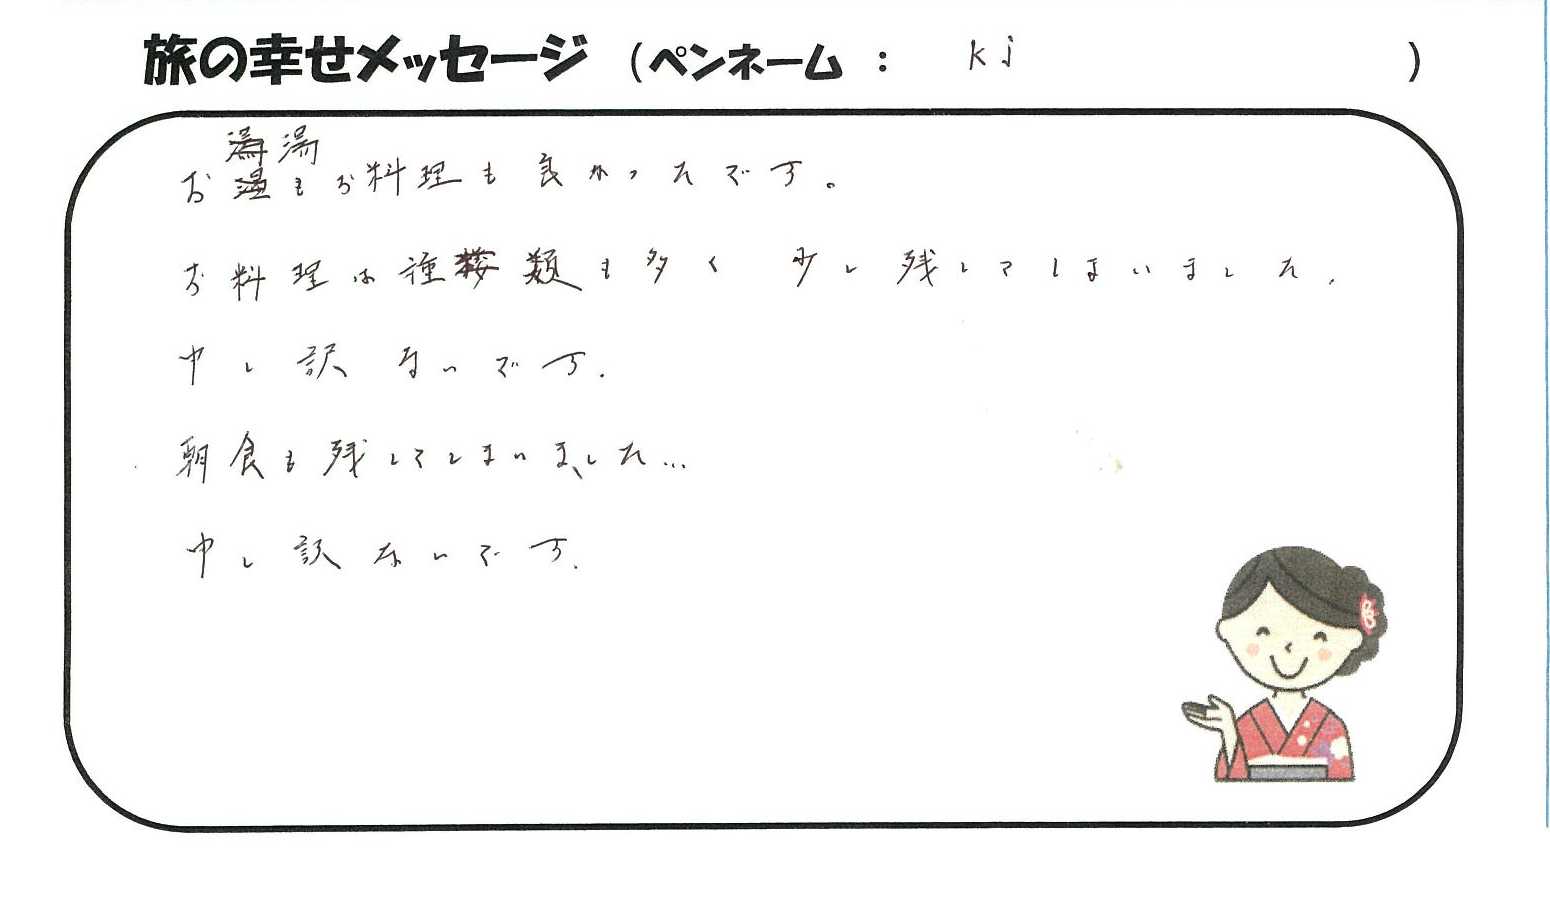 旅の幸せメッセージ （ペンネーム ： kj ）
お湯もお料理も良かったです。
お料理は種類も多く 少し残してしまいました.
申し訳ないです.
朝食も残してしまいました...
申し訳ないです.